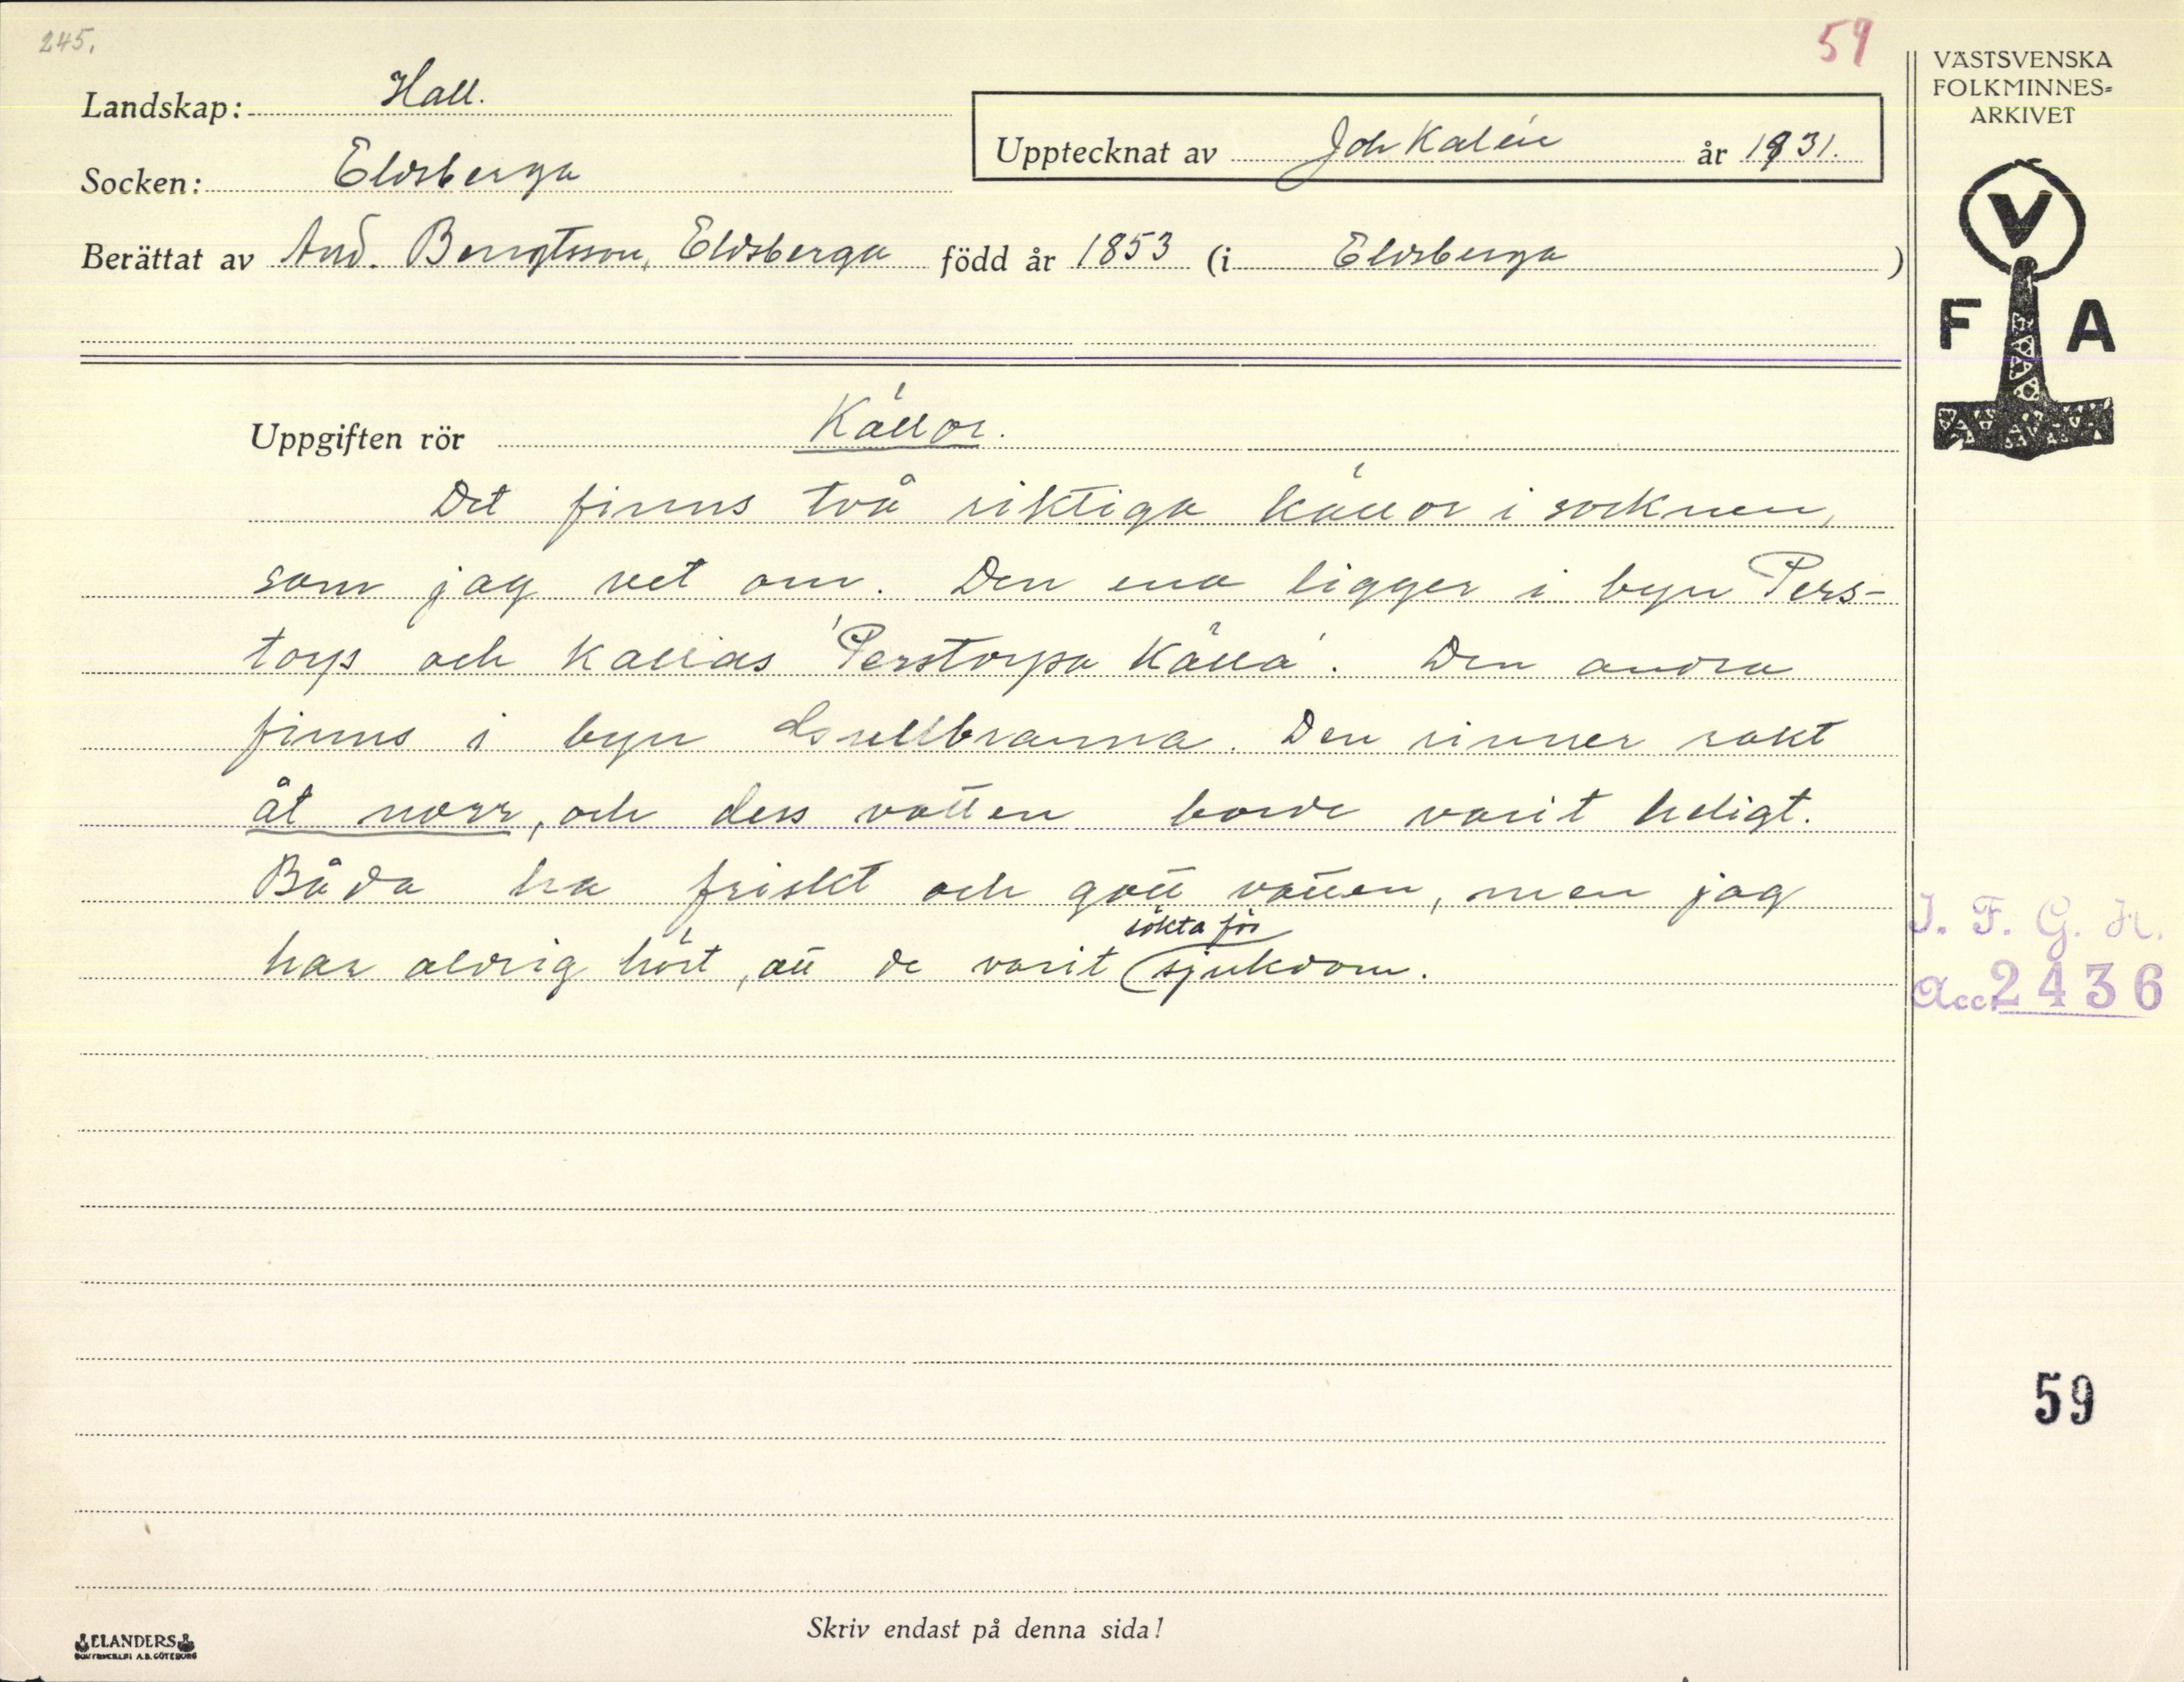 245.
59
Landskap: Hall.
Socken: Eldsberga
Upptecknat av Joh Kalén år 1931.
Berättat av And. Bengtsson, Eldsberga född år 1853 (i Eldsberga)
Uppgiften rör Källor.
Det finns två riktiga källor i socknen,
som jag vet om. Den ena ligger i byn Pers-
torp och kallas 'Perstorpa källa'. Den andra
finns i byn. Den rinner rakt
åt norr, och dess vatten borde varit heligt.
Båda ha friskt och gott vatten, men jag
har aldrig hört, att de varit sökta för sjukdom.
Skriv endast på denna sida!
ELANDERS
BOKTRYCKERI A.B. GÖTEBORG
VÄSTSVENSKA
FOLKMINNES=
ARKIVET
V
F A
I. F. G. H.
Acc. 2436
59